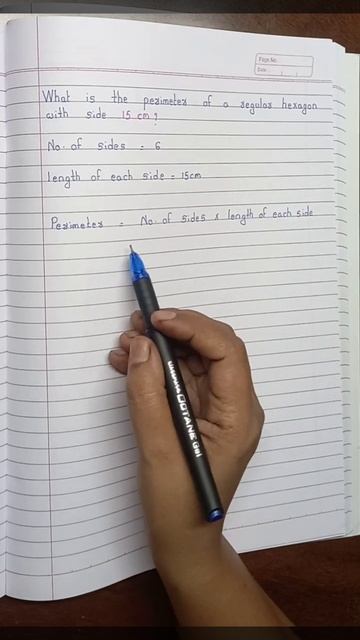 Page No.
Date
What is the perimeter of a regular hexagon
with side 15 cm?
No. of sides = 6
length of each side = 15cm
Perimeter = No. of sides x length of each side
OCTANE Gel